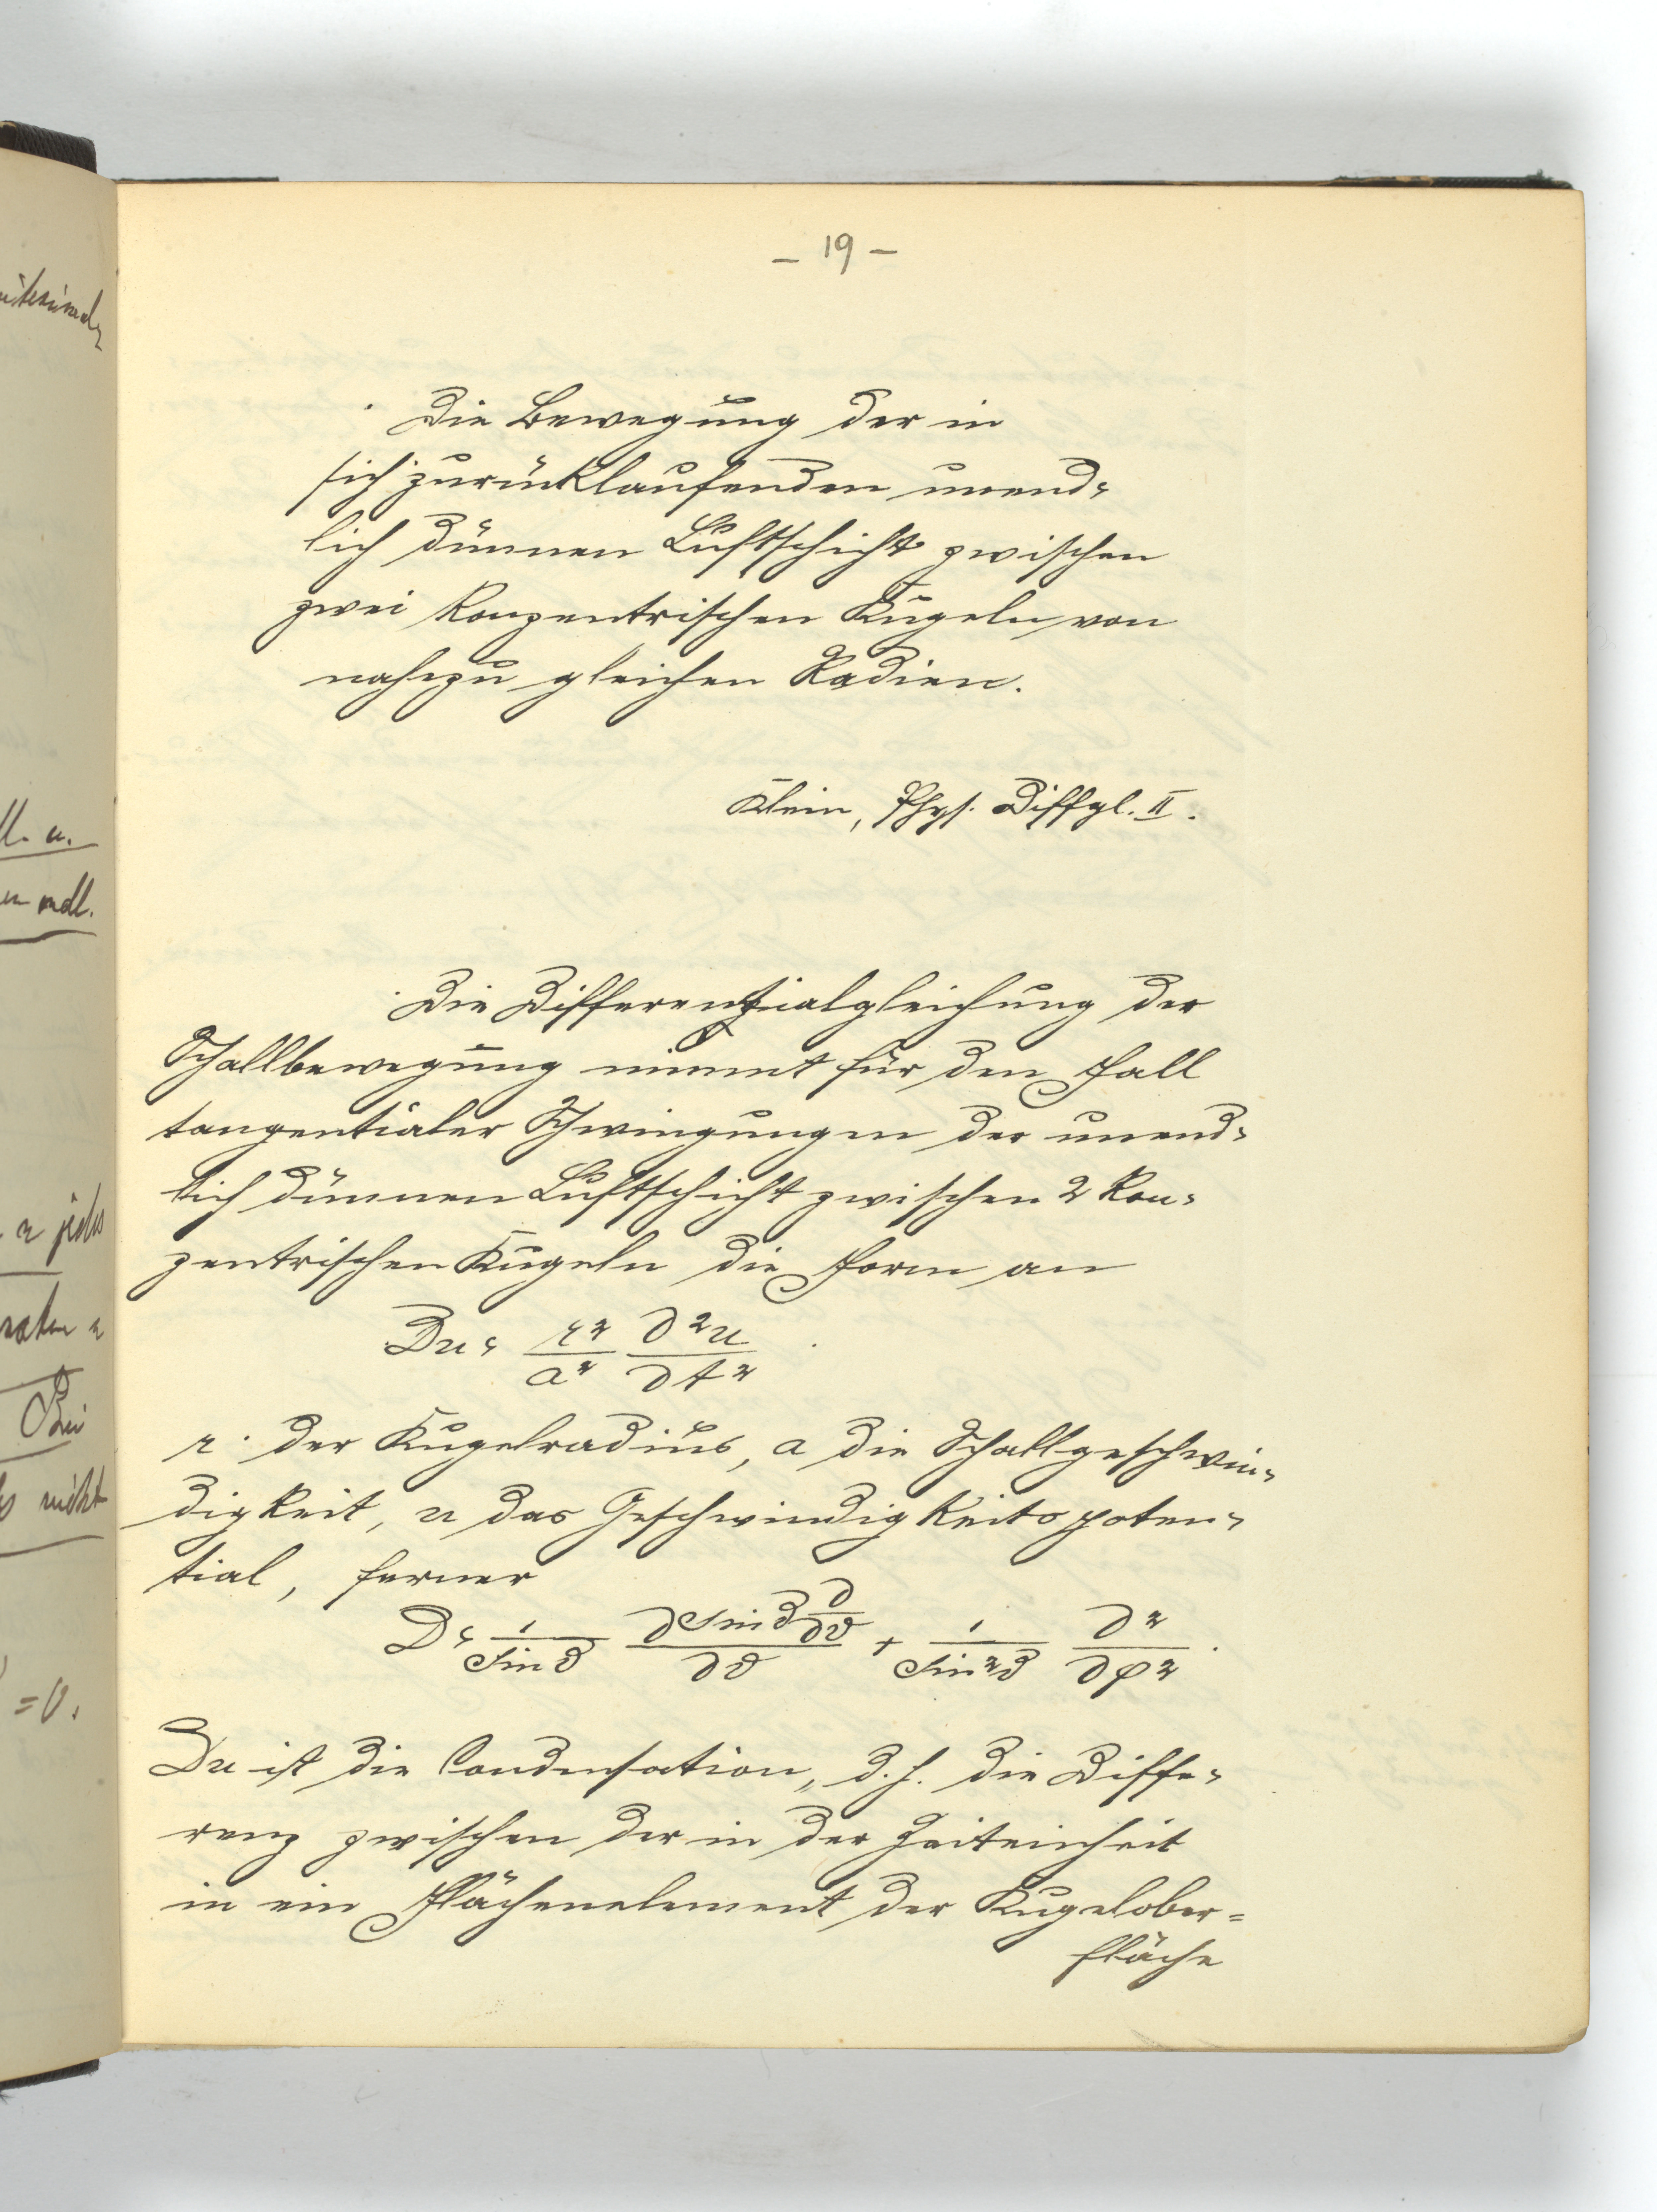 – 19 –
Die Bewegung der in
sich zurücklaufenden unend-
lich dünnen Luftschicht zwischen
zwei konzentrischen Kugeln von
nahezu gleichen Radien.
Klein, Phys. Diffgl. II.
Die Differentialgleichung der
Schallbewegung nimmt für den Fall
tangentialer Schwingungen der unend-
lich dünnen Luftschicht zwischen 2 kon-
zentrischen Kugeln die Form an
Du = r²/a² ∂²u/∂t²
r der Kugelradius, a die Schallgeschwin-
digkeit, u das Geschwindigkeitspoten-
tial, ferner
D = 1/sin ϑ ∂ sin ϑ ∂/∂ϑ / ∂ϑ + 1/sin²ϑ ∂²/∂φ².
Du ist die Condensation, d. h. die Diffe-
renz zwischen der in der Zeiteinheit
in ein Flächenelement der Kugelober=
fläche
ll. u.
n mdl.
r jedes
Bei
nicht
=0.